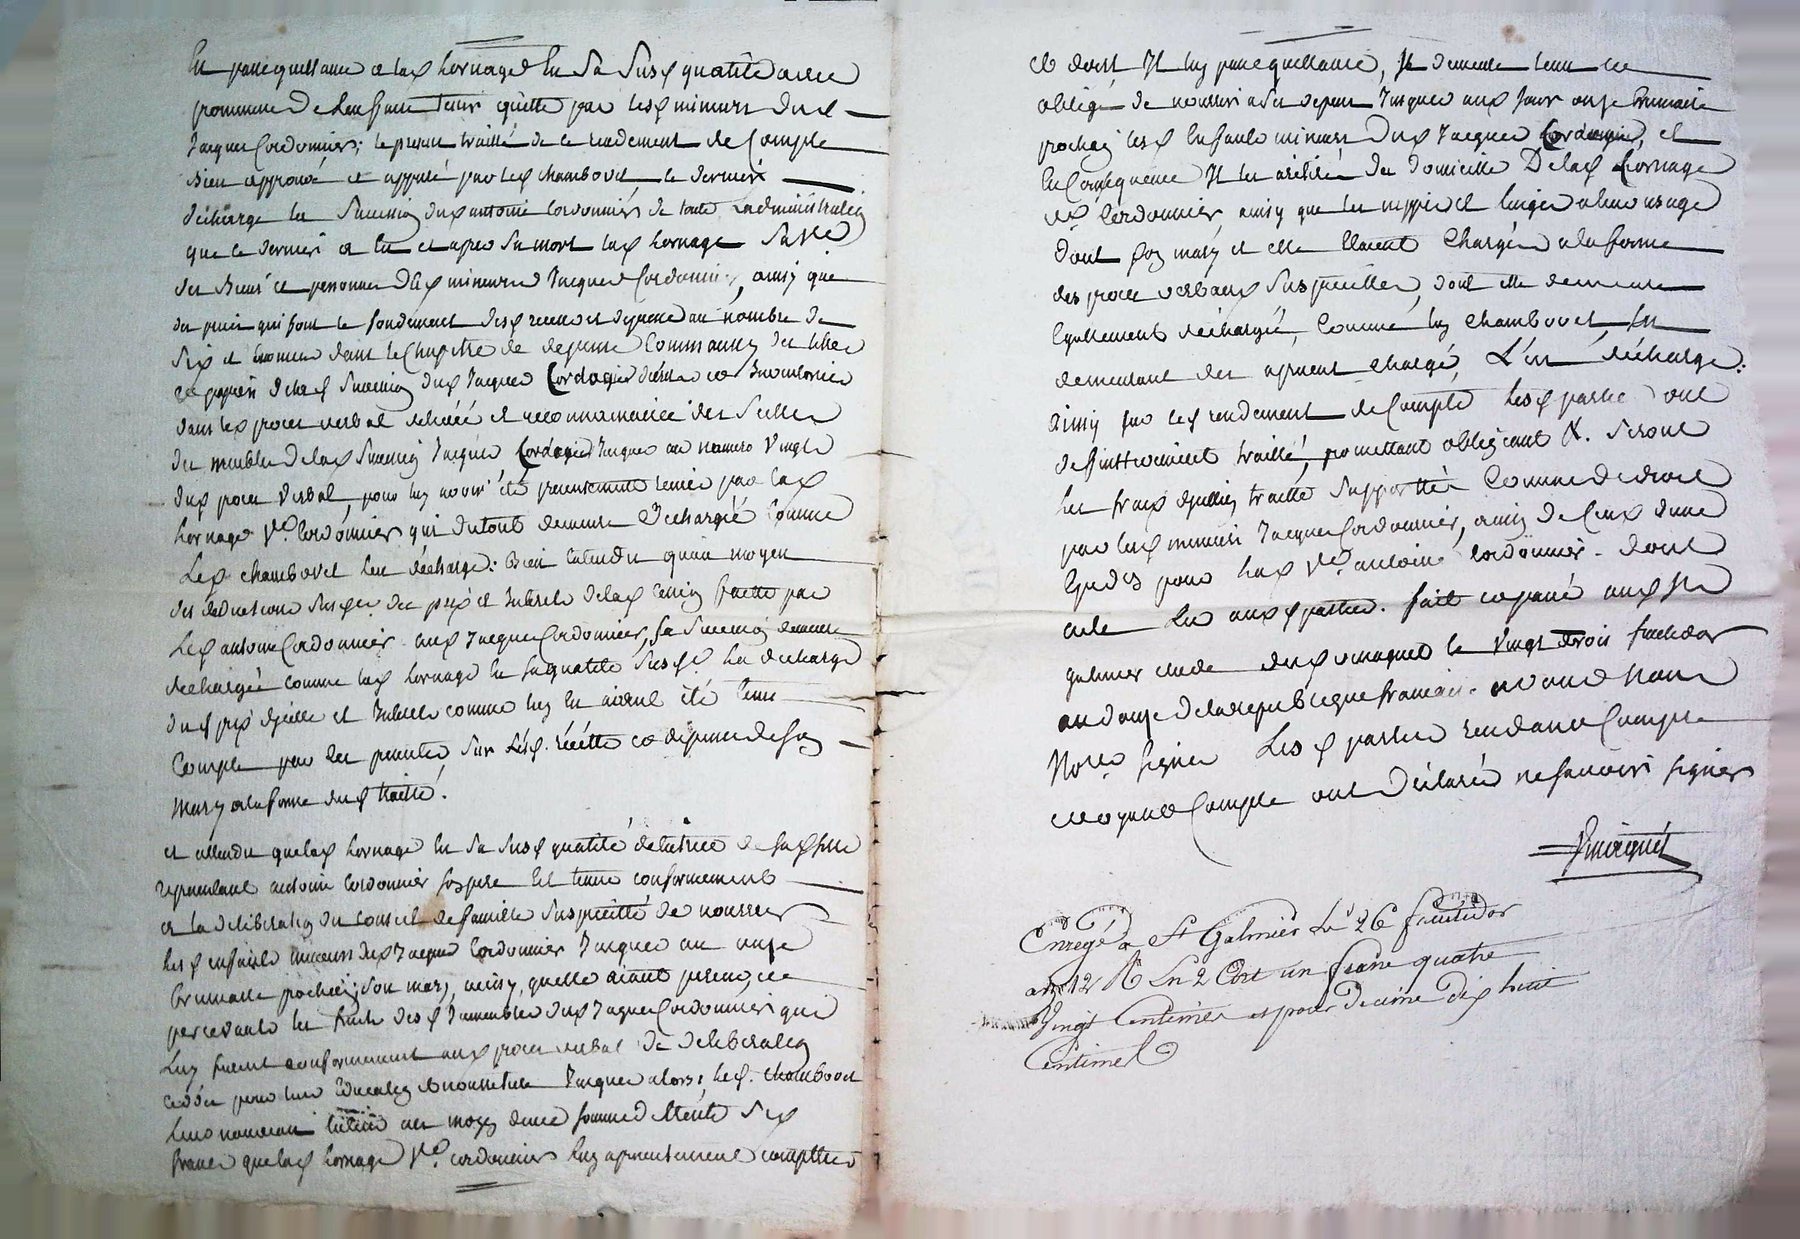 En passe quittance a lad. hornage En sa susd. qualité avec
promesse de Len faire tenir quitte par lesd. mineurs dud.
Jacques Cordonnier; le present traitté de ce rendement de Compte
Bien approuvé et appuié par led. chambovet, le dernier
décharge la Succession dud. antoine Cordonnier de toute L'administration
que le dernier a Eu et apres sa mort lad. hornage Sa Ve
des Biens et personnes desd. mineurs Jacques Cordonnier, ainsy que
des pieces qui font le fondement desd. recettes et depense au nombre de
Six et Enoncées dans le Chapitre de depense Comm aussy des titres
et papiers de lad. Succession dud. Jacques Cordonnier et Inventoriés
dans le procès verbal de levée et reconnoissance des Scellés
des meubles de lad. Succession Jacques Cordonnier Jusques au numero Vingt
dud. procès verbal, pour luy avoir été presentement remis par lad.
hornage Ve. Cordonnier qui du tout demeure Déchargée Comme
Led. chambovet Len décharge: Bien Entendu qu'au moyen
des deductions Susd. des prix et Interets de lad. cession faitte par
Led. antoine Cordonnier aud. Jacques Cordonnier, sa Succession demeure
déchargée comme lad. hornage En sa qualité Susd. La decharge
dud. prix d'icelle et Interets comme luy En aiant été tenu
Compte par les presentes Sur lesd. recette et depense de son
Mary a la forme dud. traitté.
et attendu que lad. hornage En sa Susd. qualité de tutrice de sad. fille
representant antoine Cordonnier son pere Est tenue conformement
a la deliberation du Conseil de famille Susdatté de nourrir
lesd. enfants mineurs dud. Jacques Cordonnier Jusques au onze
brumaire prochain; son mary, ainsy, quelle aiant
percevant les fruits desd. Immeubles dud. Jacques Cordonnier qui
Luy furent conformement aud. procès verbal de deliberation
cedés pour leur Education et nourriture Jusques alors; led. chambovet
Leur nouveau tuteur au moyen d'une somme de trente Six
francs que lad. hornage Ve. Cordonnier luy a presentement comptée
et dont Il luy passe quittance, Il demeure tenu et
obligé de nourrir a Ses depens Jusques aud. Jour onze brumaire
prochain lesd. Enfants mineurs dud. Jacques Cordonnier, et
En Conséquence Il les a retirés du domicile De lad. hornage
Ve. Cordonnier, ainsy que les nippes et linges a leur usage
dont son mary et elle Etaient Chargés a la forme
des procès verbaux Susdattés, dont elle demeure
Egallement déchargée, Comme luy chambovet En
demeurant des a present chargé, L'en décharge:
ainsy sur led. rendement de Compte lesd. parties ont
deffinitivement traitté, promettant obligeant &. Seront
les fraix d'icelluy traitté Supportés Comme de droit
par lesd. mineurs Jacques Cordonnier, ainsy de Ceux d'une
Expedition pour lad. Ve. antoine Cordonnier. dont
acte Lu auxd. parties. fait et passé aud. St
galmier etude dud. fourquet le Vingt trois fructidor
an douze de la republique française. avons Nous
Nores. signé Lesd. parties rendant Compte
et oyant Compte ont Déclaré ne savoir signer
fourquet
Enregé a St Galmier Le 26 fructidor
an 12 Ro En 2 Cases un franc quatre
Vingt Centimes et pour Decime Dix huit
Centimes